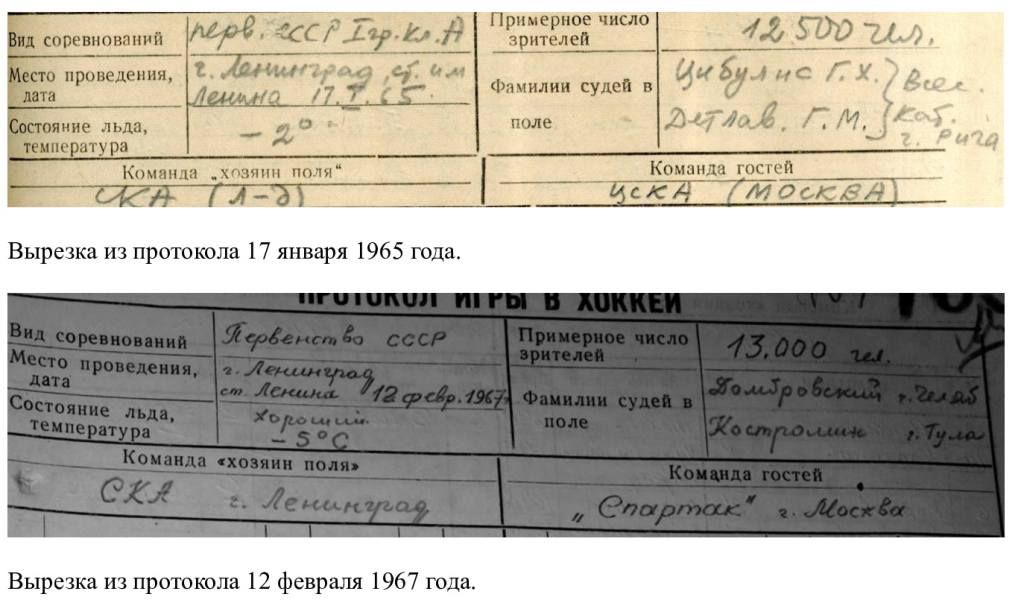 Вид соревнований
перв. СССР I гр. кл. А
Примерное число
зрителей
12.500 чел.
Место проведения,
дата
г. Ленинград, ст. им
Ленина 17.I.65.
Фамилии судей в
поле
Цибулис Г.Х.
Детлав. Г.М.
Всес.
Кат.
г. Рига
Состояние льда,
температура
-2°
Команда „хозяин поля"
Команда гостей
СКА (Л-д)
ЦСКА (МОСКВА)
Вырезка из протокола 17 января 1965 года.
ПРОТОКОЛ ИГРЫ В ХОККЕЙ
Вид соревнований
Первенство СССР
Примерное число
зрителей
13.000 чел.
Место проведения,
дата
г. Ленинград
ст. Ленина 12 февр. 1967
Фамилии судей в
поле
Домбровский г. Челяб
Костромин г. Тула
Состояние льда,
температура
хороший
-5°С
Команда «хозяин поля»
Команда гостей
СКА г. Ленинград
„Спартак" г. Москва
Вырезка из протокола 12 февраля 1967 года.